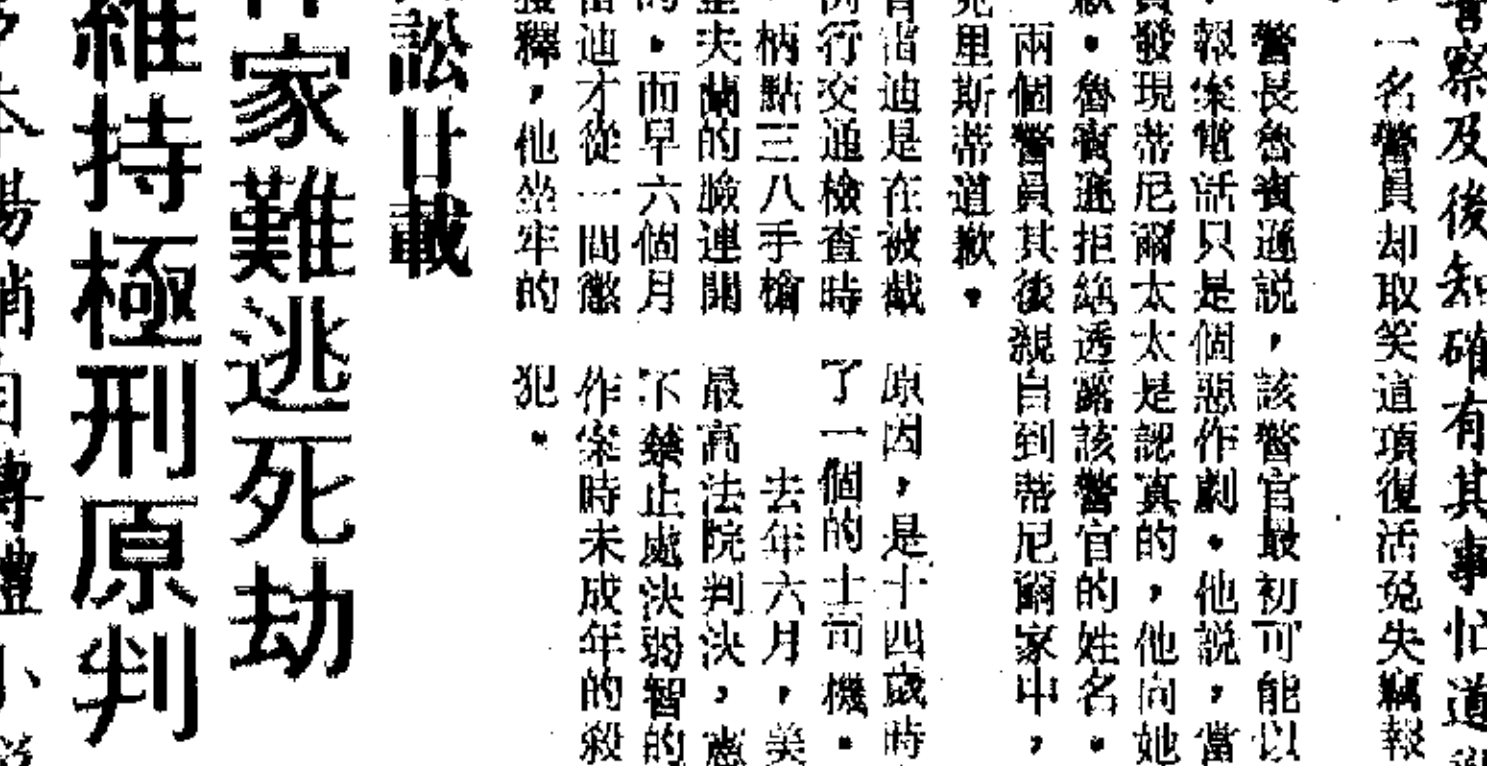 警察及後知確有其事忙道
一名警員却取笑道項復活兔失竊報
警長魯賓遜説，該警官最初可能以
報案電話只是個惡作劇。他説，當
發現蒂尼爾太太是認真的，他向她
歉。魯賓遜拒絕透露該警官的姓名。
兩個警員其後親自到蒂尼爾家中，
克里斯蒂道歉。
雷迪是在被截
例行交通檢查時
，柄點三八手槍
里夫蘭的臉連開
的，而早六個月
雷迪才從一間懲
獲釋，他坐牢的
原因，是十四歲時
了一個的士司機。
去年六月，美
最高法院判決，憲
不禁止處決弱智的
作案時未成年的殺
犯。
訟廿載
家難逃死劫
維持極刑原判